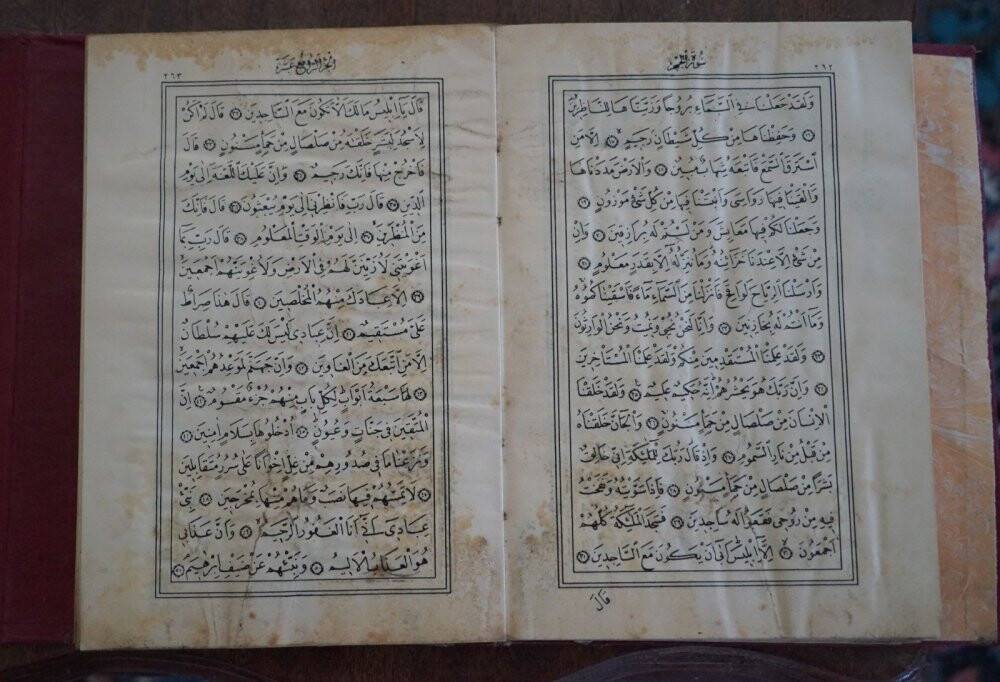 سُورَةُ الْحِجْرِ ٢٦٢
وَلَقَدْ جَعَلْنَا فِي السَّمَاءِ بُرُوجًا وَزَيَّنَّاهَا لِلنَّاظِرِينَ
١٦ وَحَفِظْنَاهَا مِنْ كُلِّ شَيْطَانٍ رَجِيمٍ ١٧ اِلَّا مَنِ
اسْتَرَقَ السَّمْعَ فَاَتْبَعَهُ شِهَابٌ مُبِينٌ ١٨ وَالْاَرْضَ مَدَدْنَاهَا
وَاَلْقَيْنَا فِيهَا رَوَاسِيَ وَاَنْبَتْنَا فِيهَا مِنْ كُلِّ شَيْءٍ مَوْزُونٍ ١٩
وَجَعَلْنَا لَكُمْ فِيهَا مَعَايِشَ وَمَنْ لَسْتُمْ لَهُ بِرَازِقِينَ ٢٠ وَاِنْ
مِنْ شَيْءٍ اِلَّا عِنْدَنَا خَزَائِنُهُ وَمَا نُنَزِّلُهُ اِلَّا بِقَدَرٍ مَعْلُومٍ ٢١
وَاَرْسَلْنَا الرِّيَاحَ لَوَاقِحَ فَاَنْزَلْنَا مِنَ السَّمَاءِ مَاءً فَاَسْقَيْنَاكُمُوهُ
وَمَا اَنْتُمْ لَهُ بِخَازِنِينَ ٢٢ وَاِنَّا لَنَحْنُ نُحْيِي وَنُمِيتُ وَنَحْنُ الْوَارِثُونَ
٢٣ وَلَقَدْ عَلِمْنَا الْمُسْتَقْدِمِينَ مِنْكُمْ وَلَقَدْ عَلِمْنَا الْمُسْتَأْخِرِينَ
٢٤ وَاِنَّ رَبَّكَ هُوَ يَحْشُرُهُمْ اِنَّهُ حَكِيمٌ عَلِيمٌ ٢٥ وَلَقَدْ خَلَقْنَا
الْاِنْسَانَ مِنْ صَلْصَالٍ مِنْ حَمَاٍ مَسْنُونٍ ٢٦ وَالْجَانَّ خَلَقْنَاهُ
مِنْ قَبْلُ مِنْ نَارِ السَّمُومِ ٢٧ وَاِذْ قَالَ رَبُّكَ لِلْمَلٰئِكَةِ اِنِّي خَالِقٌ
بَشَرًا مِنْ صَلْصَالٍ مِنْ حَمَاٍ مَسْنُونٍ ٢٨ فَاِذَا سَوَّيْتُهُ وَنَفَخْتُ
فِيهِ مِنْ رُوحِي فَقَعُوا لَهُ سَاجِدِينَ ٢٩ فَسَجَدَ الْمَلٰئِكَةُ كُلُّهُمْ
اَجْمَعُونَ ٣٠ اِلَّا اِبْلِيسَ اَبٰى اَنْ يَكُونَ مَعَ السَّاجِدِينَ ٣١
قَالَ
اَلْجُزْءُ الرَّابِعَ عَشَرَ ٢٦٣
قَالَ يَا اِبْلِيسُ مَا لَكَ اَلَّا تَكُونَ مَعَ السَّاجِدِينَ ٣٢ قَالَ لَمْ اَكُنْ
لِاَسْجُدَ لِبَشَرٍ خَلَقْتَهُ مِنْ صَلْصَالٍ مِنْ حَمَاٍ مَسْنُونٍ ٣٣ قَالَ
فَاخْرُجْ مِنْهَا فَاِنَّكَ رَجِيمٌ ٣٤ وَاِنَّ عَلَيْكَ اللَّعْنَةَ اِلٰى يَوْمِ
الدِّينِ ٣٥ قَالَ رَبِّ فَاَنْظِرْنِي اِلٰى يَوْمِ يُبْعَثُونَ ٣٦ قَالَ فَاِنَّكَ
مِنَ الْمُنْظَرِينَ ٣٧ اِلٰى يَوْمِ الْوَقْتِ الْمَعْلُومِ ٣٨ قَالَ رَبِّ بِمَا
اَغْوَيْتَنِي لَاُزَيِّنَنَّ لَهُمْ فِي الْاَرْضِ وَلَاُغْوِيَنَّهُمْ اَجْمَعِينَ
٣٩ اِلَّا عِبَادَكَ مِنْهُمُ الْمُخْلَصِينَ ٤٠ قَالَ هٰذَا صِرَاطٌ
عَلَيَّ مُسْتَقِيمٌ ٤١ اِنَّ عِبَادِي لَيْسَ لَكَ عَلَيْهِمْ سُلْطَانٌ
اِلَّا مَنِ اتَّبَعَكَ مِنَ الْغَاوِينَ ٤٢ وَاِنَّ جَهَنَّمَ لَمَوْعِدُهُمْ اَجْمَعِينَ
٤٣ لَهَا سَبْعَةُ اَبْوَابٍ لِكُلِّ بَابٍ مِنْهُمْ جُزْءٌ مَقْسُومٌ ٤٤ اِنَّ
الْمُتَّقِينَ فِي جَنَّاتٍ وَعُيُونٍ ٤٥ اُدْخُلُوهَا بِسَلَامٍ اٰمِنِينَ ٤٦
وَنَزَعْنَا مَا فِي صُدُورِهِمْ مِنْ غِلٍّ اِخْوَانًا عَلٰى سُرُرٍ مُتَقَابِلِينَ
٤٧ لَا يَمَسُّهُمْ فِيهَا نَصَبٌ وَمَا هُمْ مِنْهَا بِمُخْرَجِينَ ٤٨ نَبِّئْ
عِبَادِي اَنِّي اَنَا الْغَفُورُ الرَّحِيمُ ٤٩ وَاَنَّ عَذَابِي
هُوَ الْعَذَابُ الْاَلِيمُ ٥٠ وَنَبِّئْهُمْ عَنْ ضَيْفِ اِبْرٰهِيمَ ٥١